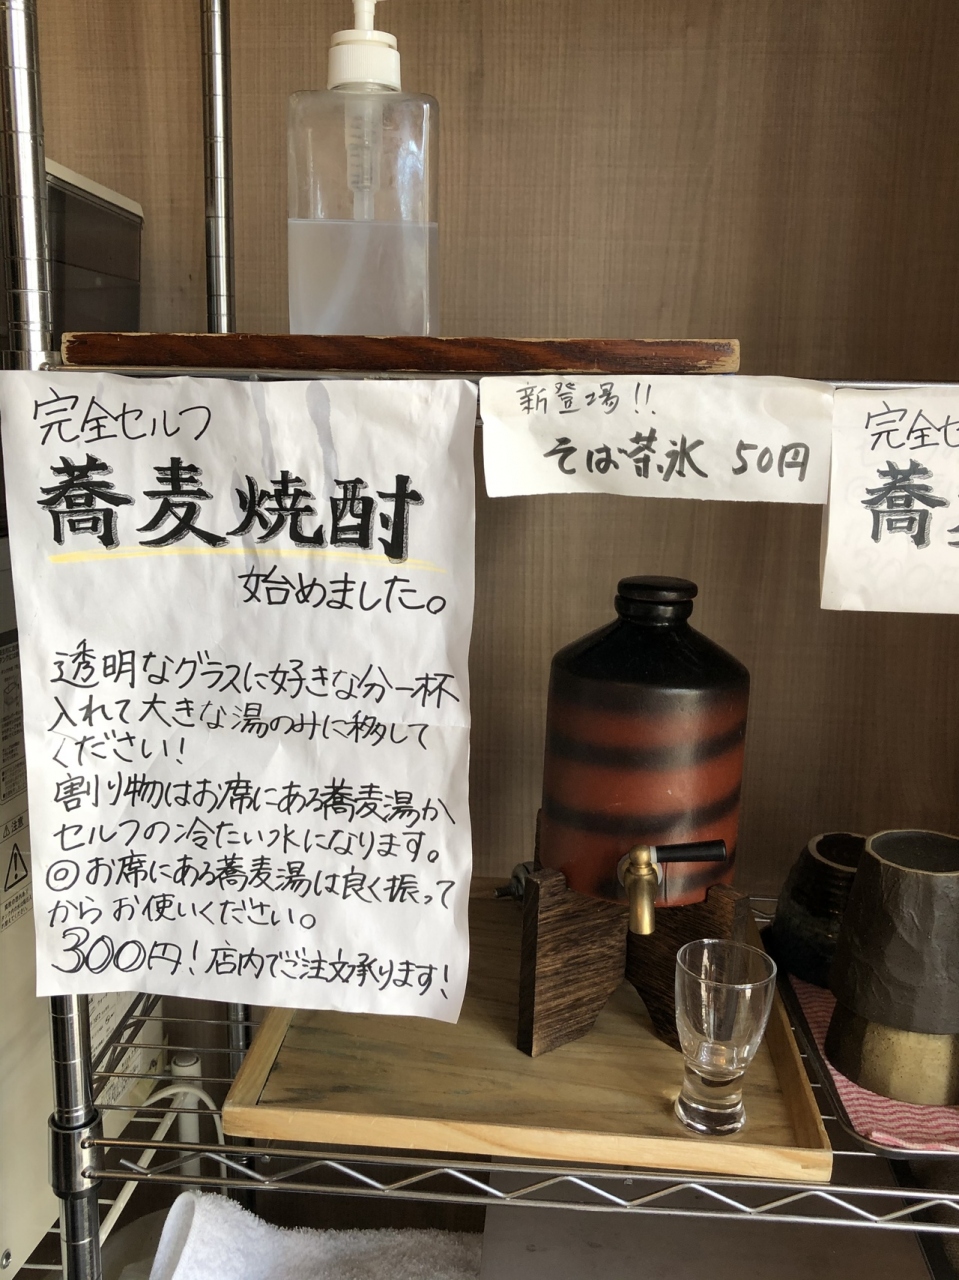 完全セルフ
蕎麦焼酎
始めました。
透明なグラスに好きな分一杯
入れて大きな湯のみに移して
ください!
割り物はお席にある蕎麦湯か
セルフの冷たい水になります。
◎お席にある蕎麦湯は良く振って
からお使いください。
300円!店内でご注文承ります!
新登場!!
そば茶氷 50円
完全セ
蕎
注意